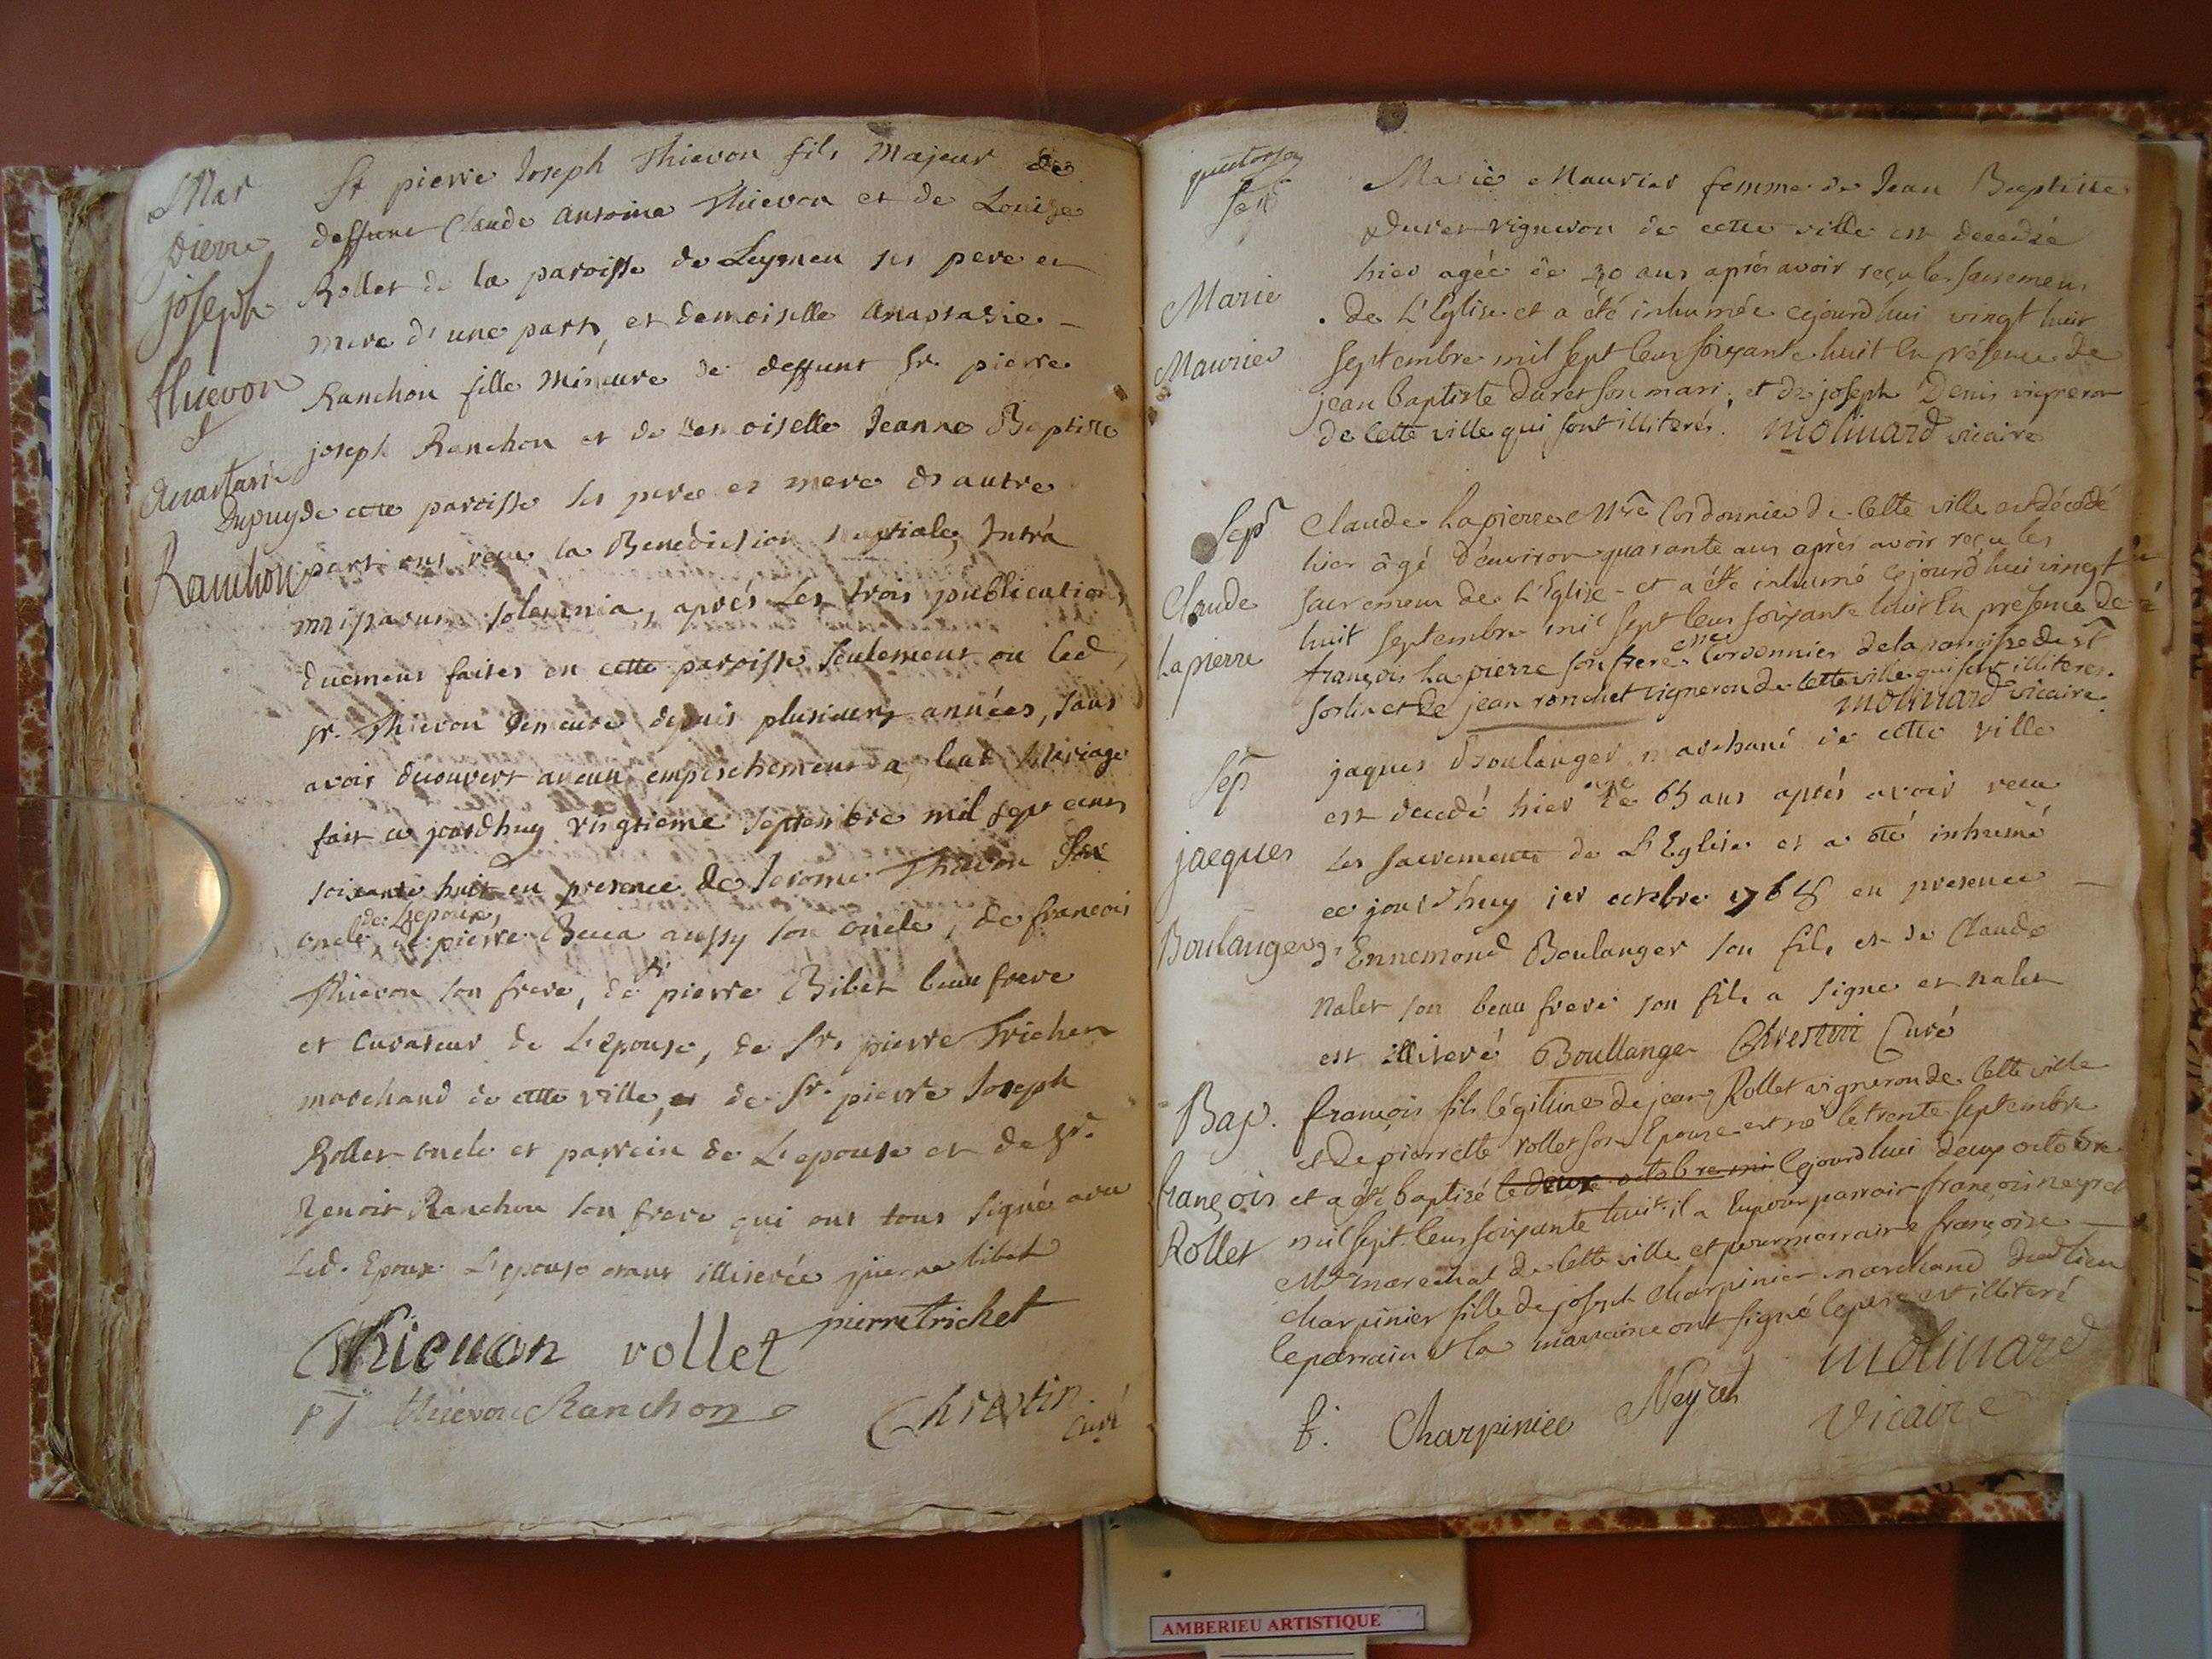 Mar
pierre
joseph
thievon
et
Anastasie
Ranchon
Sr pierre Joseph Thievon fils Majeur de
deffunt Claude Antoine Thievon et de Louise
Rollet de la paroisse de Leymen ses pere et
mere d'une part, et demoiselle Anastasie
Ranchon fille Mineure de deffunt Sr. pierre
joseph Ranchon et de Demoiselle Jeanne Baptiste
Dupuy de cette paroisse ses pere et mere d'autre
part ont reçu la Benediction nuptiale, Intrà
missarum solemnia, aprés Les trois publications
duement faites en cette paroisse seulement ou led
sr. Thievon demeure depuis plusieurs années, sans
avoir decouvert aucun empeschement a leur Mariage
fait ce jourdhuy vingtieme septembre mil sept cent
soixante huit en presence de Jerome Thievon son
de L'epoux,
oncle, de pierre aussy son oncle, de francois
Thievon son frere, de sr pierre Bibet beau frere
et Curateur de L'epouse, de Sr. pierre Trichet
marchand de cette ville, et de Sr. pierre Joseph
Rollet oncle et parrein de L'epouse et de Sr.
Benoit Ranchon son frere qui ont tous signé avec
Led. Epoux L'epouse étant illiterée pierre bibet
Thievon rollet pierre trichet
p j thievon Ranchon Chrestin
Curé
sept
Marie
Maurier
Marie Maurier femme de Jean Baptiste
Duret vigneron de cette ville est decedée
hier agée de 30 ans aprés avoir reçu les sacremens
de L'Eglise et a été inhumée cejourd'hui vingt huit
septembre mil sept cens soixante huit en présence de
jean baptiste duret son mari, et de joseph Denis vigneron
de cette ville qui sont illiterés. molinard vicaire
sept
Claude
Lapierre
Claude Lapierre Mtre Cordonnier de cette ville est décédé
hier âgé d'environ quarante ans après avoir reçu les
sacremens de L'Eglise et a été inhumé cejourd'hui vingt
huit septembre mil sept cens soixante huit en presence de
françois Lapierre son frere Cordonnier de la paroisse de st
sorlin et de jean ronchet vigneron de cette ville qui sont illiteres.
molinard vicaire.
sept
jacques
Boulanger
jaques Boulanger marchand de cette ville
est decedé hier agé de 65 ans aprés avoir recu
les sacrements de L'Eglise et a été inhumé
ce jourd'huy 1er octobre 1768 en presence
d'Ennemond Boulanger son fils et de Claude
Nalet son beau frere son fils a signe et nalet
est illiteré Boullanger Chrestin Curé
Bap.
françois
Rollet
françois fils légitime de jean Rollet vigneron de cette ville
et de pierrette rollet son Epouse est né le trente septembre
et a été baptisé le deux octobre mi cejourd'hui deux octobre
mil sept cens soixante huit. il a Eu pour parrain françois neyret
Mtre marechal de cette ville et pour marraine françoise
charpinier fille de joseph charpinier marchand dud lieu
le parrain et la marraine ont signé le pere est illiteré
f. Charpinier Neyret molinard
vicaire
AMBERIEU ARTISTIQUE